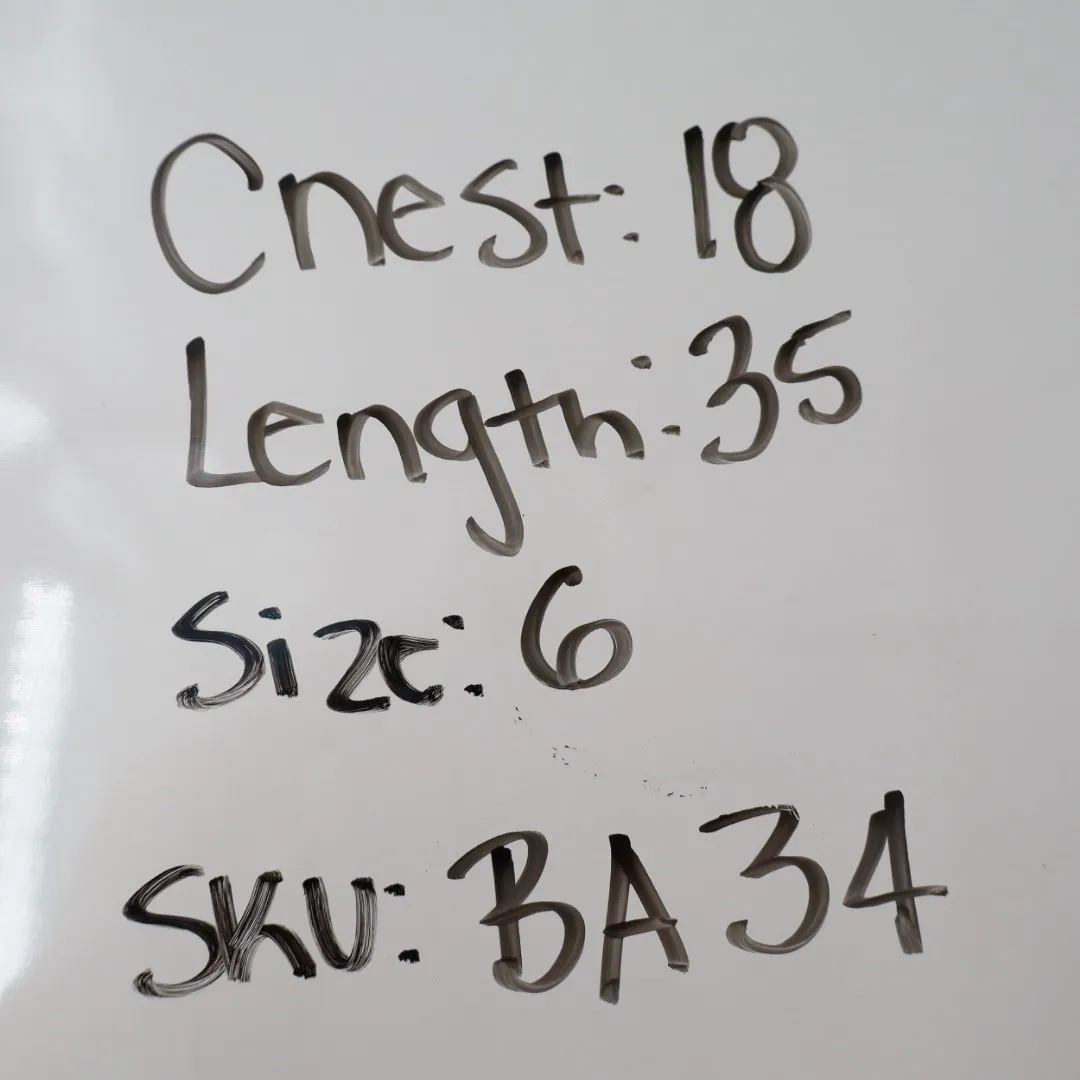 Chest: 18
Length: 35
Size: 6
SKU: BA34